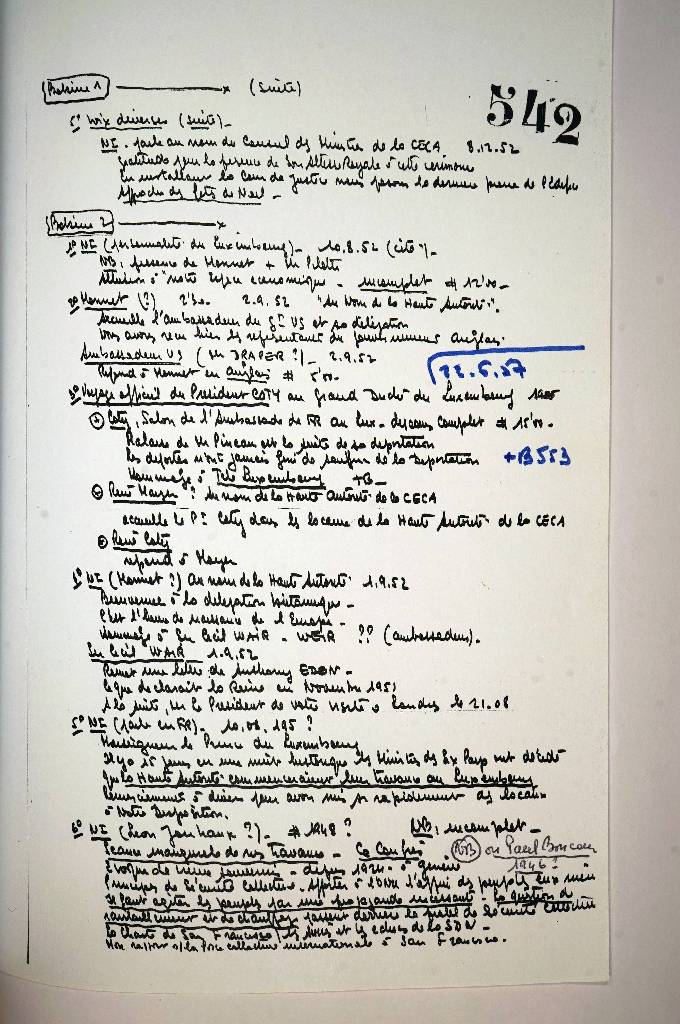 Bobine 1 (suite)
542
5° Voix diverses (suite) -
NI. parle au nom du Conseil des Ministres de la CECA 8.12.52
gratitude pour la présence de Son Altesse Royale à cette cérémonie
En installant la Cour de Justice nous posons la dernière pierre de l'édifice
approche des fêtes de Noël -
Bobine 2
1° NI (personnalité du Luxembourg) - 10.8.52 (cité) -
NB: présence de Monnet +
Allusion à notre espace économique - incomplet # 12'00 -
2° Monnet (?) 2'30 - 2.9.52 "Au Nom de la Haute Autorité".
Accueille l'ambassadeur du Gt US et sa délégation
Vous avons reçu hier les représentants du gouvernement Anglais.
Ambassadeur US (Mr DRAPER ?) - 2.9.52
Répond à Monnet en anglais # 5'00 -
22.6.57
3° Voyage officiel du Président COTY au Grand Duché du Luxembourg
① Coty, Salon de l'Ambassade de FR au Lux - discours complet # 15'00 -
Malaise de Mr Pineau est la suite de sa déportation
les déportés n'ont jamais fini de souffrir de la Déportation +B 553
Hommage à Luxembourg +B -
② René Mayer ? Au nom de la Haute Autorité de la CECA
accueille le Pt Coty dans les locaux de la Haute Autorité de la CECA
③ René Coty
répond à Mayer
4° NI (Monnet ?) Au nom de la Haute Autorité 1.9.52
Bienvenue à la délégation britannique -
C'est l'heure de naissance de l'Europe -
Hommage à Sir Cecil WAIR - WEIR ?? (ambassadeur).
Sir Cecil WAIR 1.9.52
Remet une lettre de Anthony EDEN -
ce que déclarait la Reine en Novembre 1951
A la suite, Mr le Président de votre visite à Londres le 21.08
5° NI (parle en FR) - 10.08.195 ?
Monseigneur le Prince du Luxembourg
Il y a 15 jours en une nuit historique les Ministres des Six Pays ont décidé
que la Haute Autorité commencerait leur travaux au Luxembourg
Remerciement à divers pour avoir mis si rapidement des locaux
à Notre Disposition.
6° NI (Léon Jouhaux ?) - # 1948 ? NB: incomplet -
NB ou Paul Boncour
1946 ?
Séance inaugurale de nos travaux -
Évoque de vieux souvenirs - depuis 1924 - à Genève
Principes de Sécurité Collective. Apporter à l'ONU l'appui des peuples eux mêmes
Il faut agiter les peuples par une propagande incessante - La question du
ravitaillement et de chauffage passent derrière le problème de Sécurité collective
La Charte de San Francisco / les succès et les échecs de la SDN -
collective internationale à San Francisco.